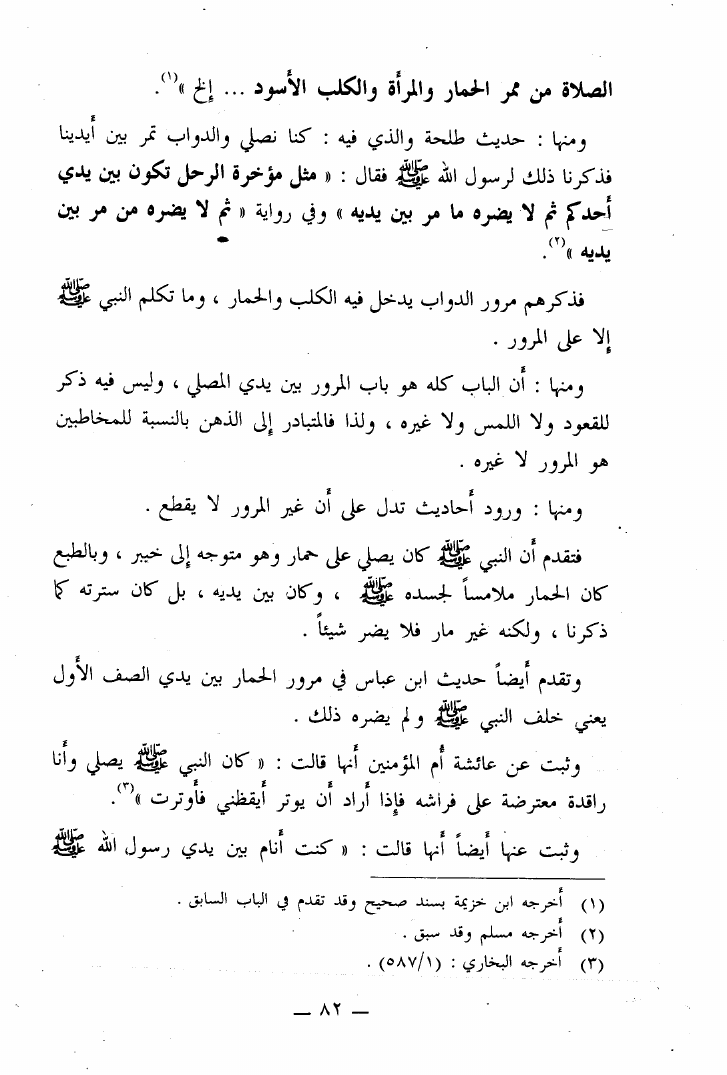 الصلاة من ممر الحمار والمرأة والكلب الأسود ... إلخ »(١).
ومنها : حديث طلحة والذي فيه : كنا نصلي والدواب تمر بين أيدينا
فذكرنا ذلك لرسول الله ﷺ فقال : « مثل مؤخرة الرحل تكون بين يدي
أحدكم ثم لا يضره ما مر بين يديه » وفي رواية « ثم لا يضره من مر بين
يديه »(٢).
فذكرهم مرور الدواب يدخل فيه الكلب والحمار ، وما تكلم النبي ﷺ
إلا على المرور .
ومنها : أن الباب كله هو باب المرور بين يدي المصلي ، وليس فيه ذكر
للقعود ولا اللمس ولا غيره ، ولذا فالمتبادر إلى الذهن بالنسبة للمخاطبين
هو المرور لا غيره .
ومنها : ورود أحاديث تدل على أن غير المرور لا يقطع .
فتقدم أن النبي ﷺ كان يصلي على حمار وهو متوجه إلى خيبر ، وبالطبع
كان الحمار ملامساً لجسده ﷺ ، وكان بين يديه ، بل كان سترته كما
ذكرنا ، ولكنه غير مار فلا يضر شيئاً .
وتقدم أيضاً حديث ابن عباس في مرور الحمار بين يدي الصف الأول
يعني خلف النبي ﷺ ولم يضره ذلك .
وثبت عن عائشة أم المؤمنين أنها قالت : « كان النبي ﷺ يصلي وأنا
راقدة معترضة على فراشه فإذا أراد أن يوتر أيقظني فأوترت »(٣).
وثبت عنها أيضاً أنها قالت : « كنت أنام بين يدي رسول الله ﷺ
(١) أخرجه ابن خزيمة بسند صحيح وقد تقدم في الباب السابق .
(٢) أخرجه مسلم وقد سبق .
(٣) أخرجه البخاري : (٥٨٧/١) .
— ٨٢ —